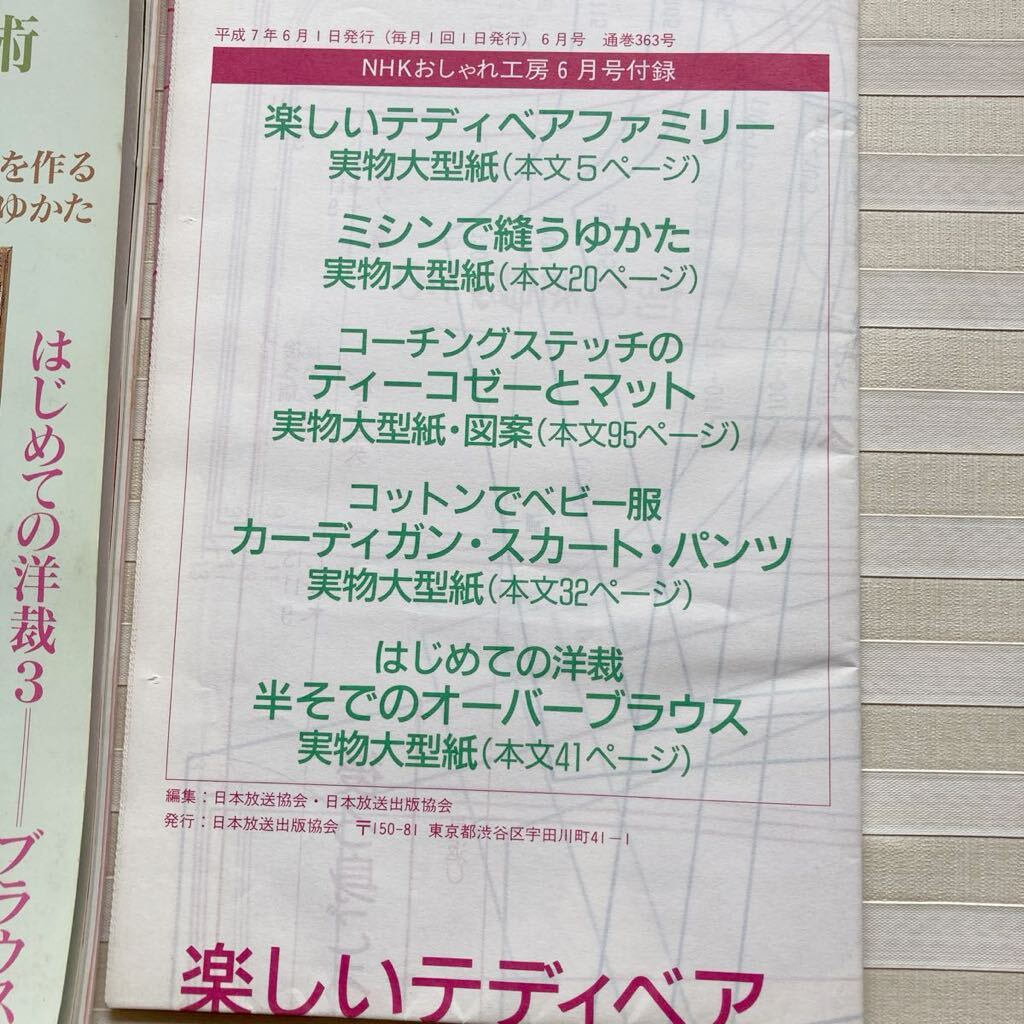 平成7年6月1日発行（毎月1回1日発行）6月号 通巻363号
NHKおしゃれ工房6月号付録
楽しいテディベアファミリー
実物大型紙（本文5ページ）
ミシンで縫うゆかた
実物大型紙（本文20ページ）
コーチングステッチの
ティーコゼーとマット
実物大型紙・図案（本文95ページ）
コットンでベビー服
カーディガン・スカート・パンツ
実物大型紙（本文32ページ）
はじめての洋裁
半そでのオーバーブラウス
実物大型紙（本文41ページ）
編集：日本放送協会・日本放送出版協会
発行：日本放送出版協会 〒150-81 東京都渋谷区宇田川町41-1
楽しいテディベア
術
を作る
ゆかた
はじめての洋裁3──ブラウス